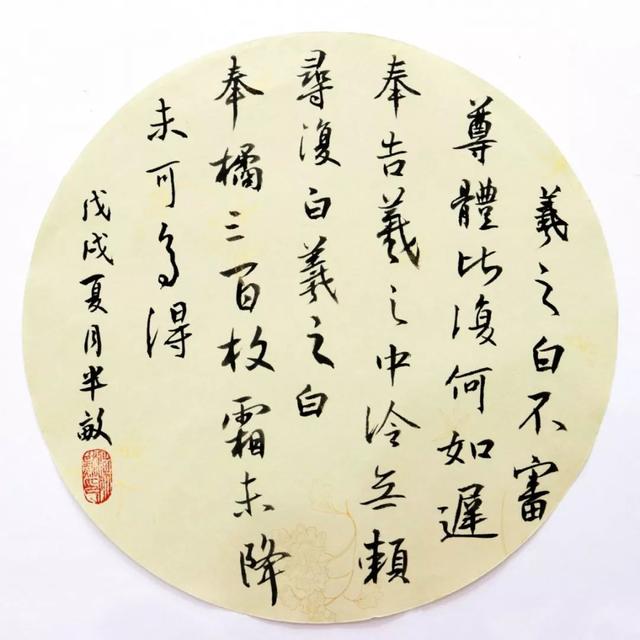 羲之白不審
尊體比復何如遲
奉告羲之中冷無賴
尋復白羲之白
奉橘三百枚霜未降
未可多得
戊戌夏月半畝